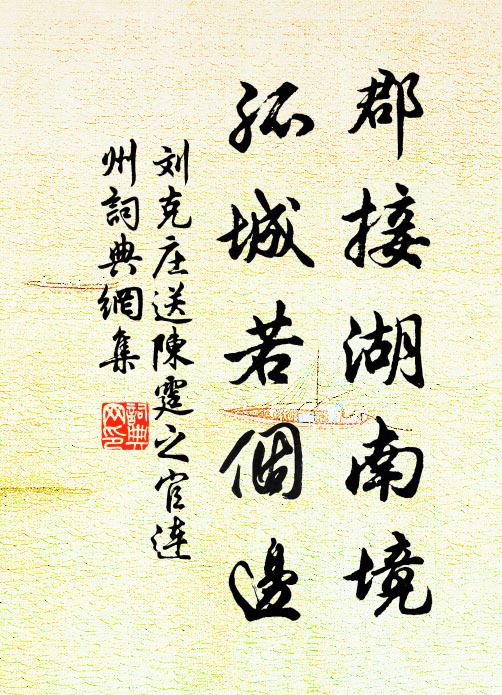 郡接湖南境
孤城若個邊
刘克庄送陳霆之官連
州詞典網集
詞典网印